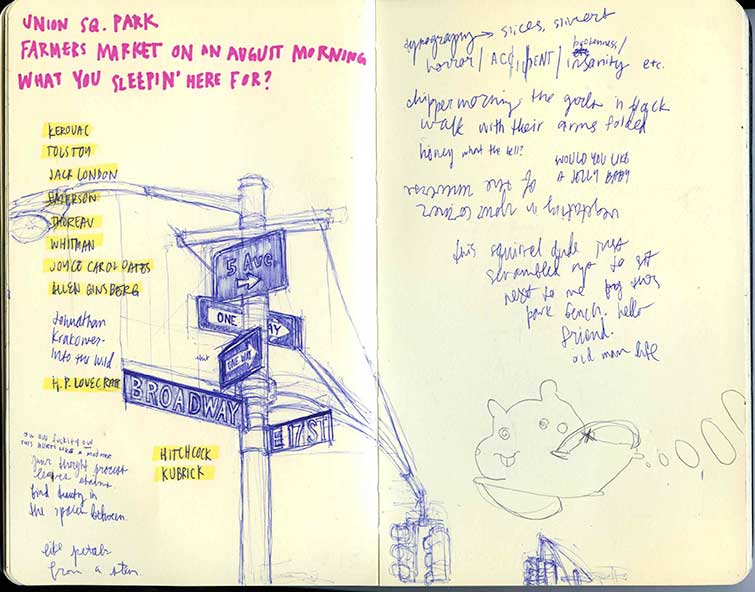 UNION SQ. PARK
FARMERS MARKET ON AN AUGUST MORNING
WHAT YOU SLEEPIN' HERE FOR?
KEROUAC
TOLSTOY
JACK LONDON
EMERSON
THOREAU
WHITMAN
JOYCE CAROL OATES
ALLEN GINSBERG
Johnathan
Krakower-
Into the Wild
H.P. LOVECRAFT
HITCHCOCK
KUBRICK
your thought process
leaves stains.
find beauty in
the spaces between
like petals
from a stem.
5 AVE
ONE WAY
ONE WAY
BROADWAY
E 17 ST
typography → slices, slivers
horror / ACCIDENT / brokenness /
insanity etc.
chipper morning, the gods in black
walk with their arms folded
honey what the hell?
WOULD YOU LIKE
A JOLLY BABY
this squirrel dude just
scrambled up to sit
next to me by this
park bench. hello
friend.
old man life